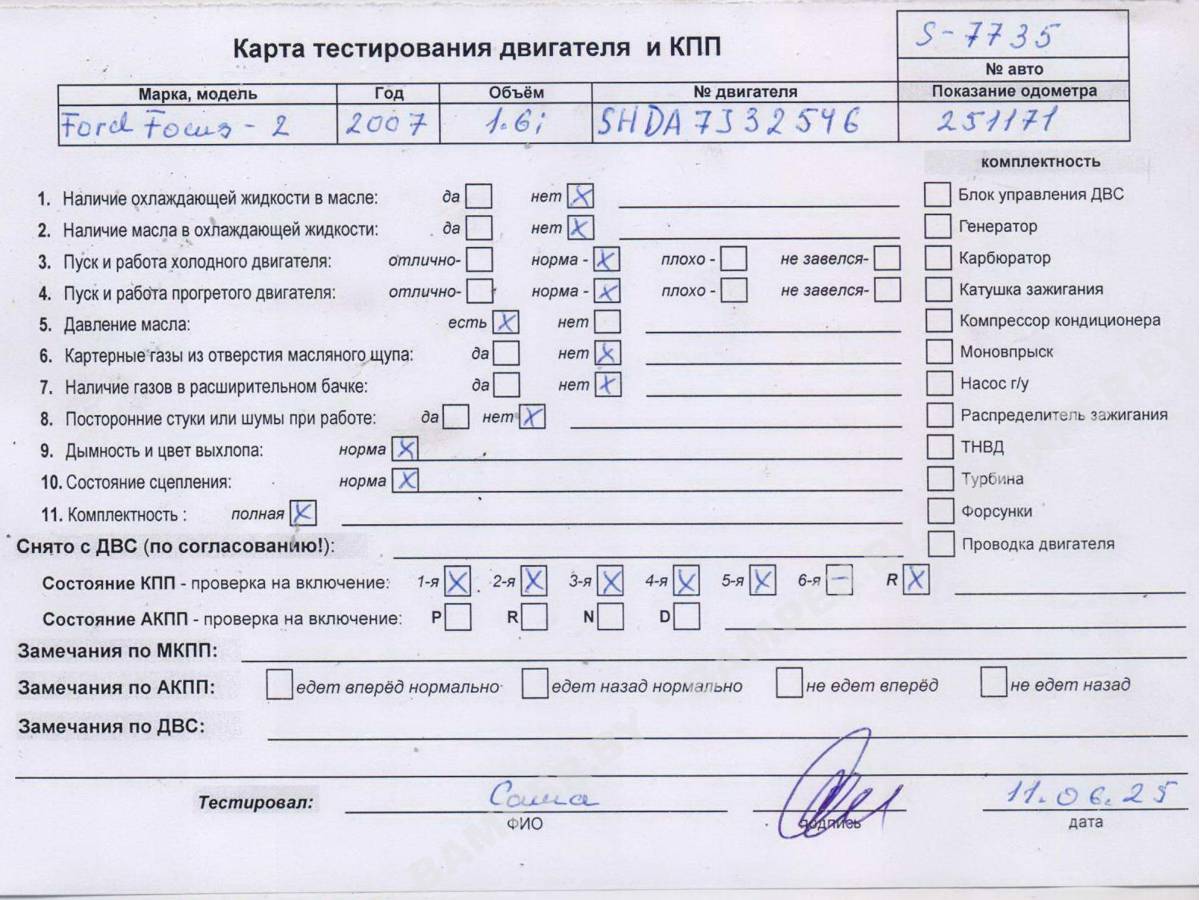 S-7735
Карта тестирования двигателя и КПП
№ авто
Марка, модель Год Объём № двигателя Показание одометра
Ford Focus - 2 2007 1.6i SHDA7332546 251171
комплектность
1. Наличие охлаждающей жидкости в масле: да нет X
2. Наличие масла в охлаждающей жидкости: да нет X
3. Пуск и работа холодного двигателя: отлично- норма - X плохо - не завелся-
4. Пуск и работа прогретого двигателя: отлично- норма - X плохо - не завелся-
5. Давление масла: есть X нет
6. Картерные газы из отверстия масляного щупа: да нет X
7. Наличие газов в расширительном бачке: да нет X
8. Посторонние стуки или шумы при работе: да нет X
9. Дымность и цвет выхлопа: норма X
10. Состояние сцепления: норма X
11. Комплектность : полная X
Блок управления ДВС
Генератор
Карбюратор
Катушка зажигания
Компрессор кондиционера
Моновпрыск
Насос г/у
Распределитель зажигания
ТНВД
Турбина
Форсунки
Проводка двигателя
Снято с ДВС (по согласованию!):
Состояние КПП - проверка на включение: 1-я X 2-я X 3-я X 4-я X 5-я X 6-я – R X
Состояние АКПП - проверка на включение: P R N D
Замечания по МКПП:
Замечания по АКПП: едет вперёд нормально едет назад нормально не едет вперёд не едет назад
Замечания по ДВС:
Тестировал: Саша 11.06.25
ФИО подпись дата